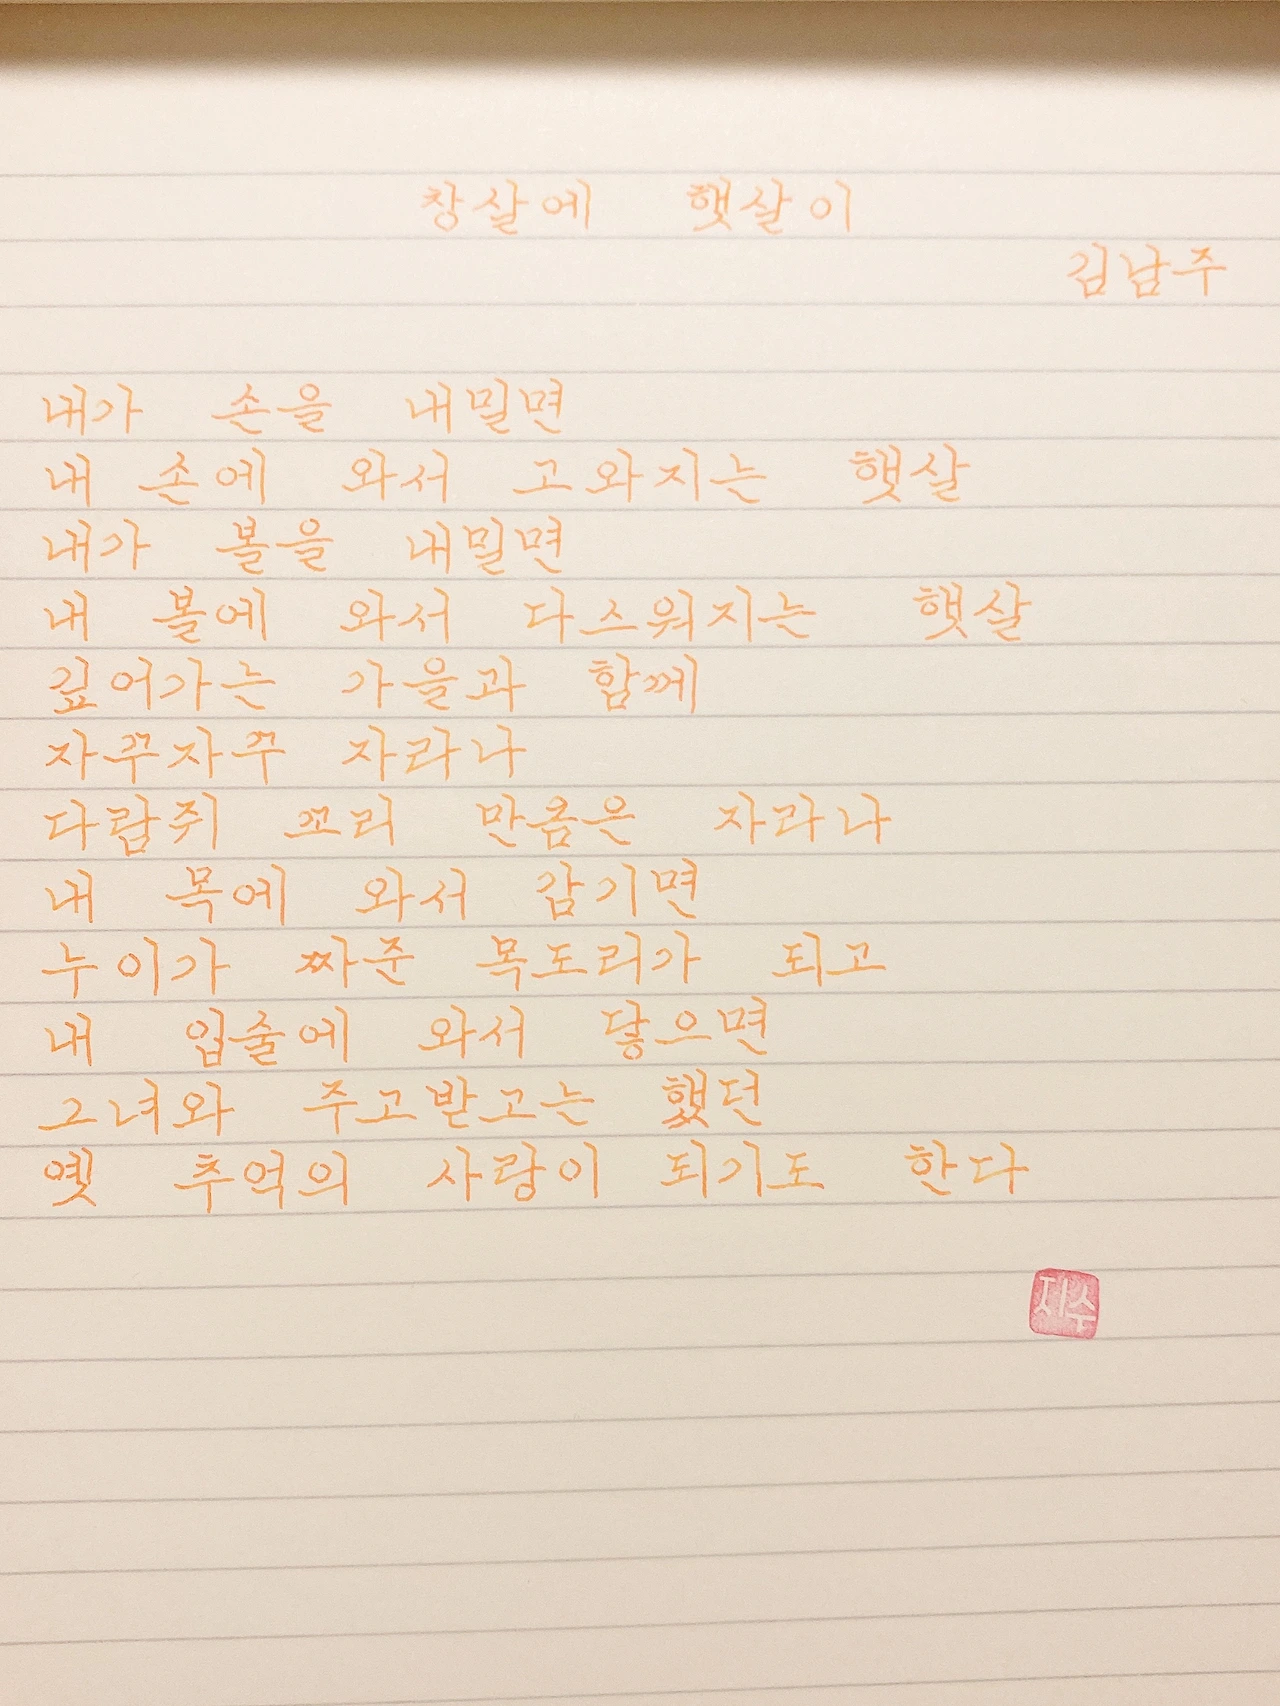 창살에 햇살이
김남주
내가 손을 내밀면
내 손에 와서 고와지는 햇살
내가 볼을 내밀면
내 볼에 와서 다스워지는 햇살
깊어가는 가을과 함께
자꾸자꾸 자라나
다람쥐 꼬리 만큼은 자라나
내 목에 와서 감기면
누이가 짜준 목도리가 되고
내 입술에 와서 닿으면
그녀와 주고받고는 했던
옛 추억의 사랑이 되기도 한다
지수